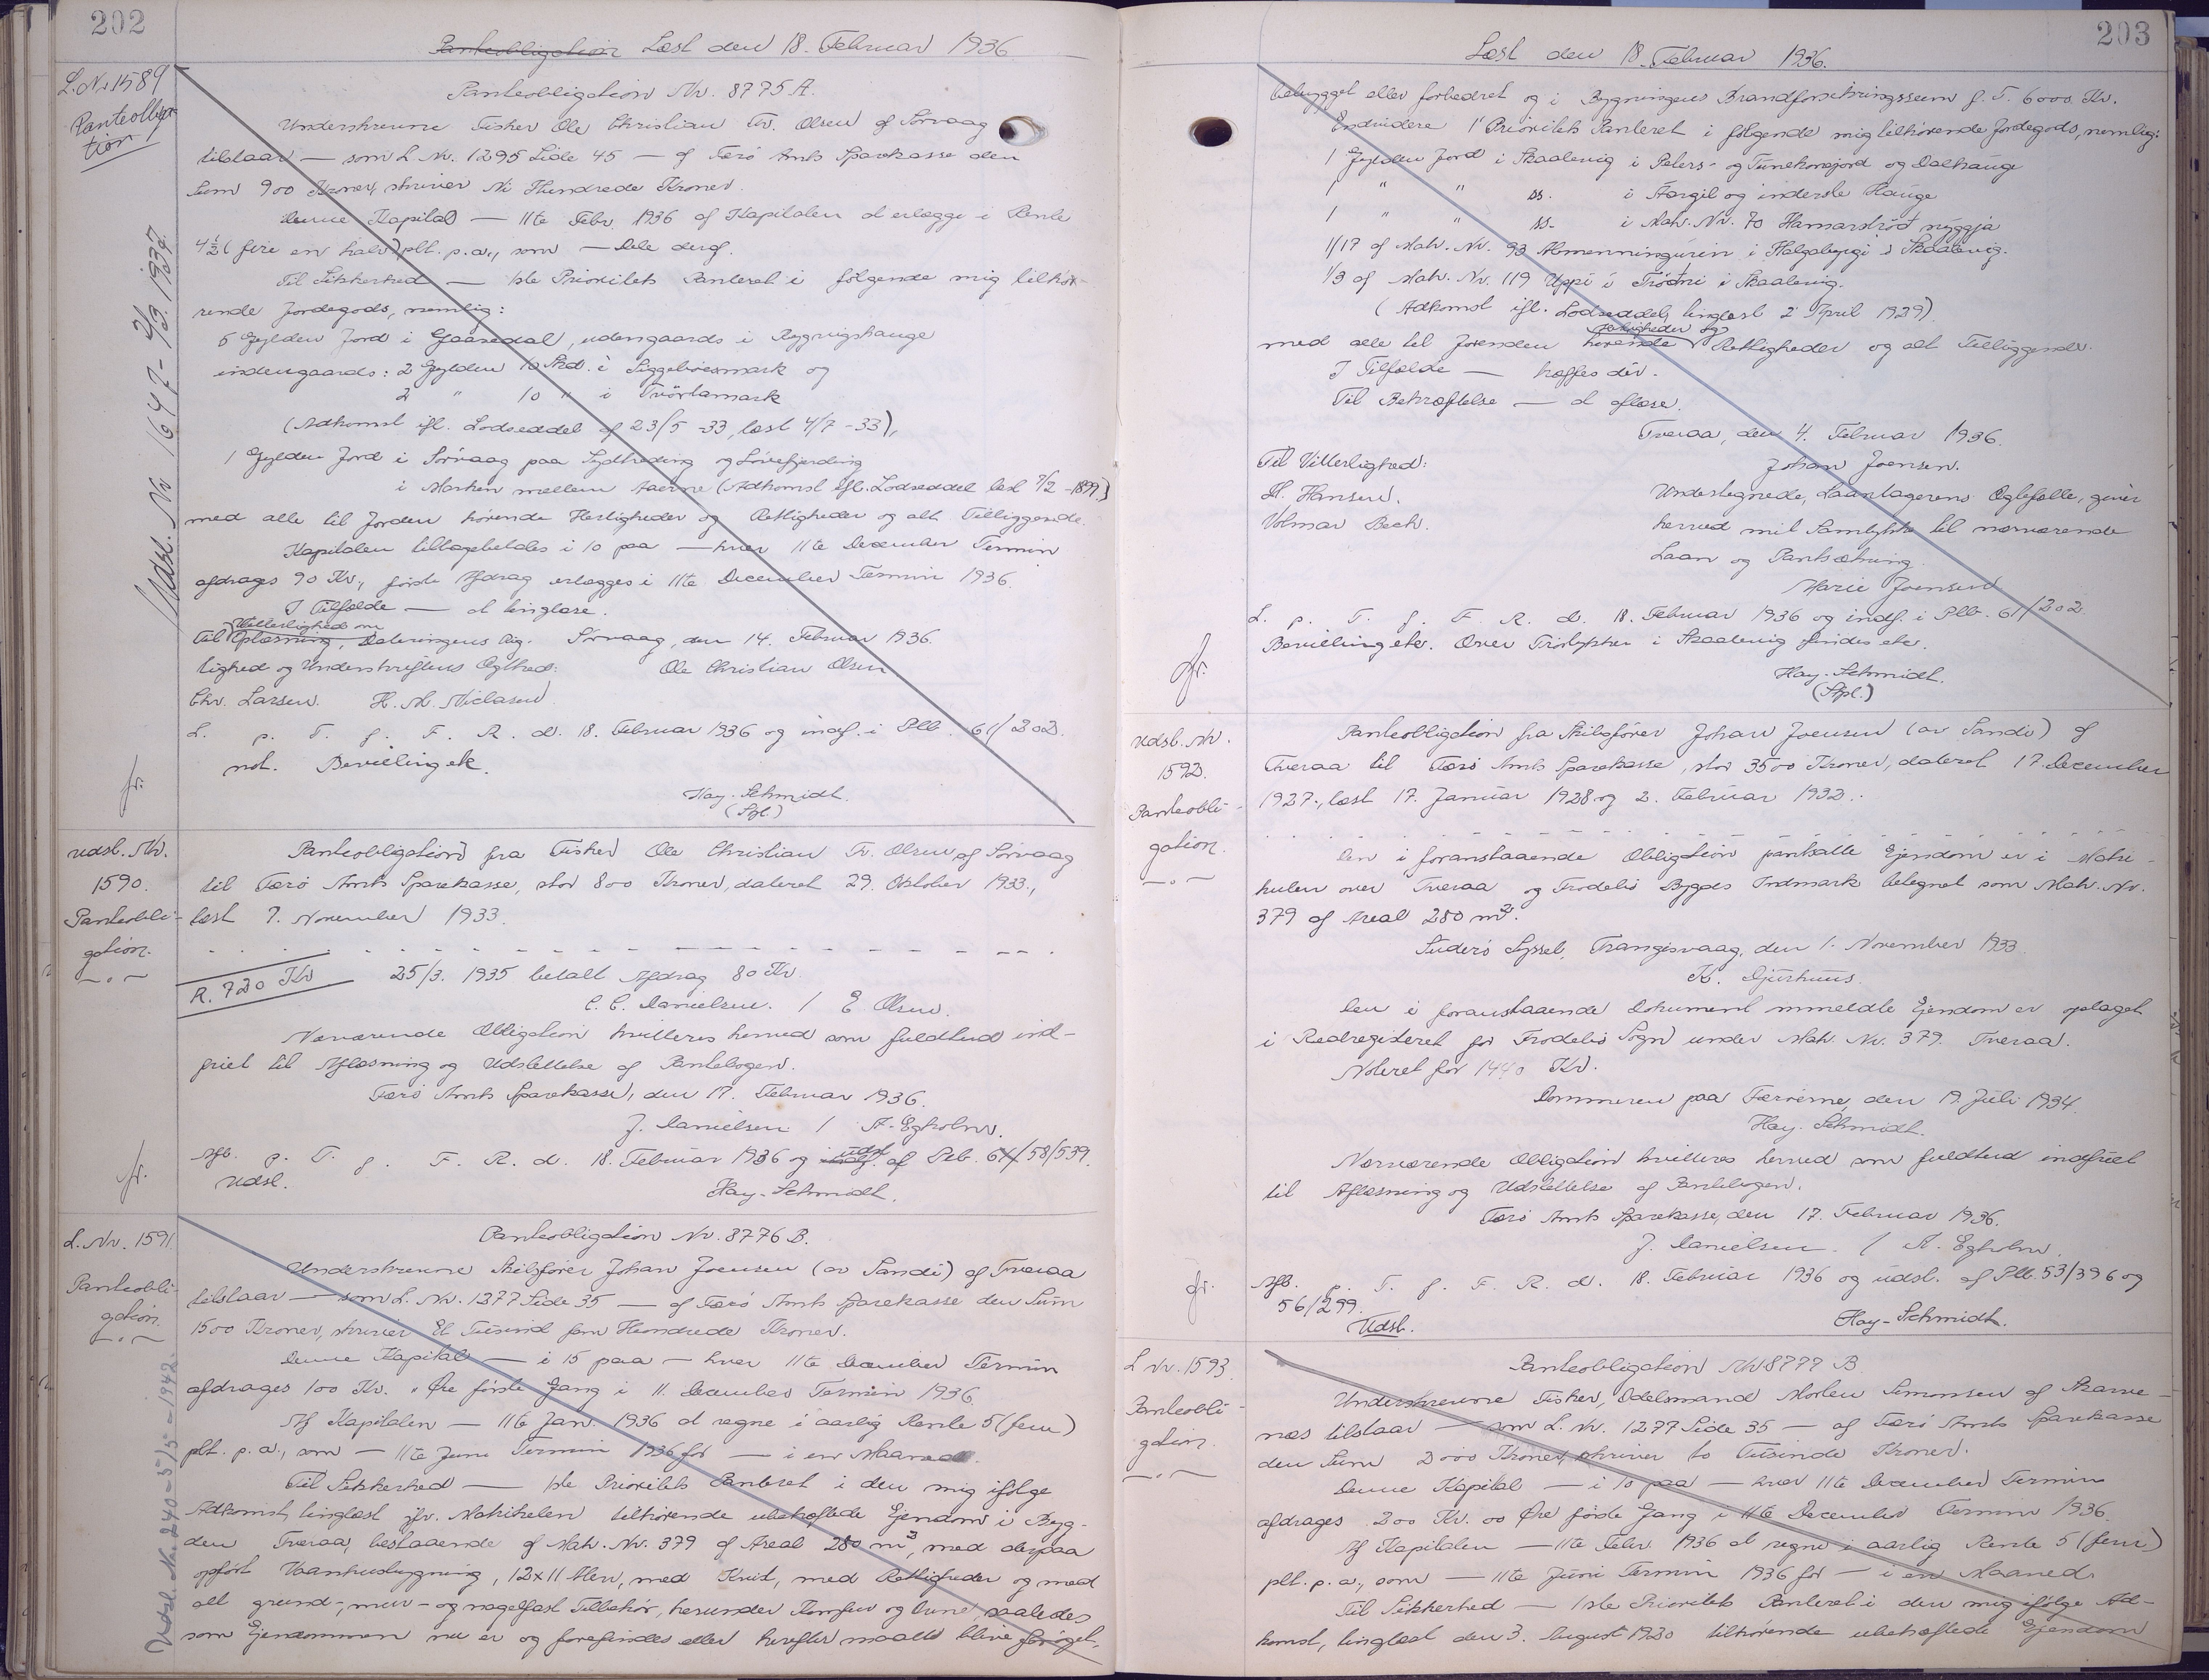 202
Panteobligation Læst den 18. Februar 1936
L. Nr. 1589
Panteobliga-
tion
Udsl. Nr 1647 - 2/9. 1937.
Panteobligation Nr. 8775 A.
Underskrevne Fisker Ole Christian Fr. Olsen af Sørvaag
tilstaar — som L. Nr. 1295 Side 45 — af Færø Amts Sparekasse den
Sum 900 Kroner, skriver Ni Hundrede Kroner.
Denne Kapital — 11te Febr. 1936 af Kapitalen at erlægge i Rente
4½ (fire en halv) pCt. p.a., som — Dele deraf.
Til Sikkerhed — 1ste Prioritets Panteret i følgende mig tilhø-
rende Jordegods, nemlig:
6 Gylden Jord i Gaasedal, udengaards i Rygvigshauge
indengaards: 2 Gylden 10 Skd. i Siggebøesmark og
2 " 10 " i Tvørtamark
(Adkomst ifl. Lodseddel af 23/5 -33, læst 4/7 -33),
1 Gylden Jord i Sørvaag paa Sydtreding og Løvefjerding
i Marken mellem Aaerne (Adkomst ifl. Lodseddel læst 7/2 -1899)
med alle til Jorden hørende Herligheder og Rettigheder og alt Tilliggende.
Kapitalen tilbagebetales i 10 paa — hver 11te December Termin
afdrages 90 Kr., første Afdrag erlægges i 11te December Termin 1936.
I Tilfælde — at tinglæse.
Vitterlighed om
Til Oplæsning, Dateringens Rig- Sørvaag, den 14. Februar 1936.
tighed og Underskriftens Ægthed: Ole Christian Olsen
Chr. Larsen. H. M. Niclasen
L. p. T. f. F. R. d. 18. Februar 1936 og indf. i Plb. 61/202.
not. Bevilling etc.
fr.
Hay-Schmidt.
(Spl.)
Udsl. Nr.
1590.
Panteobli-
gation.
Panteobligation fra Fisker Ole Christian Fr. Olsen af Sørvaag
til Færø Amts Sparekasse, stor 800 Kroner, dateret 29. Oktober 1933.,
læst 7. November 1933.
R. 720 Kr 25/3. 1935 betalt Afdrag 80 Kr.
C. C. Danielsen. / E. Olsen.
Nærværende Obligation kvitteres herved som fuldtud ind-
friet til Aflæsning og Udslettelse af Pantebogen.
Færø Amts Sparekasse, den 17. Februar 1936.
J. Danielsen / A. Egholm.
udsl
Afl. p. T. f. F. R. d. 18. Februar 1936 og indf. af Plb. 61/58/539.
Udsl.
Hay-Schmidt.
fr.
L. Nr. 1591.
Panteobli-
gation.
Udsl. Nr. 240 - 5/5 - 1942.
Panteobligation Nr. 8776 B.
Underskrevne Skibsfører Johan Joensen (av Sandi) af Tveraa
tilstaar — som L. Nr. 1277 Side 35 — af Færø Amts Sparekasse den Sum
1500 Kroner, skriver Et Tusind fem Hundrede Kroner.
Denne Kapital — i 15 paa — hver 11te December Termin
afdrages 100 Kr. " Øre første Gang i 11. December Termin 1936.
Af Kapitalen — 11te Jan. 1936 at regne i aarlig Rente 5 (fem)
pCt. p.a., som — 11te Juni Termin 1936 for — i en Maaned.
Til Sikkerhed — 1ste Prioritets Panteret i den mig ifølge
Adkomst, tinglæst jfr. Matrikelen tilhørende ubehæftede Ejendom i Byg-
den Tveraa, bestaaende af Matr. Nr. 379 af Areal 280 m², med derpaa
opført Vaanhusbygning, 12x11 Alen, med Kvist, med Rettigheder og med
alt grund-, mur- og nagelfast Tilbehør, herunder Komfur og Ovne, saaledes
som Ejendommen nu er og forefindes eller herefter maatte blive forøget,
203
Læst den 18. Februar 1936.
bebygget eller forbedret og i Bygningens Brandforsikringssum p.T. 6000 Kr.
Endvidere 1' Prioritets Panteret i følgende mig tilhørende Jordegods, nemlig:
1 Gylden Jord i Skaalevig i Peters- og Tunekonajord og Dalhauge
1 " " ss. i Aargil og inderste Hauge
1 " " ss. i Matr. Nr. 70 Hamarstrøð nýggja
1/17 af Matr. Nr. 93 Almenningurin i Helgabygi i Skaalevig.
1/3 af Matr. Nr. 119 Uppi í Trøðni i Skaalevig.
(Adkomst ifl. Lodseddel, tinglæst 2 April 1929)
Herligheder og
med alle til Jorenden hørende Rettigheder og alt Tilliggende.
I Tilfælde — træffes dér.
Til Bekræftelse — at aflæse.
Tveraa, den 4. Februar 1936.
Til Vitterlighed: Johan Joensen.
H. Hansen. Undertegnede, Laantagerens Ægtefælle, giver
Volmar Bech. herved mit Samtykke til nærværende
Laan og Pantsætning.
Marie Joensen
L. p. T. f. F. R. d. 18. Februar 1936 og indf. i Plb. 61/202
Bevilling etc. Over Trøstykker i Skaalevig findes etc.
fr.
Hay-Schmidt.
(Spl.)
Udsl. Nr.
1592.
Panteobli-
gation.
Panteobligation fra Skibsfører Johan Joensen (av Sandi) af
Tveraa til Færø Amts Sparekasse, stor 3500 Kroner, dateret 17. December
1927., læst 17. Januar 1928 og 2. Februar 1932.
Den i foranstaaende Obligation pantsatte Ejendom er i Matri-
kulen over Tveraa og Frodebø Bygds Indmark betegnet som Matr. Nr.
379 af Areal 280 m².
Suderø Syssel, Trangisvaag, den 1. November 1933.
K. Djurhuus.
Den i foranstaaende Dokument ommeldte Ejendom er optaget
i Realregisteret for Frodebø Sogn under Matr. Nr. 379. Tveraa.
Noteret for 1440 Kr.
Dommeren paa Færøerne, den 19. Juli 1934.
Hay-Schmidt.
Nærværende Obligation kvitteres herved som fuldtud indfriet
til Aflæsning og Udslettelse af Pantebogen.
Færø Amts Sparekasse, den 17. Februar 1936.
J. Danielsen. / A. Egholm.
fr.
Afl. p. T. f. F. R. d. 18. Februar 1936 og udsl. af Plb. 53/396 og
56/299.
Udsl.
Hay-Schmidt.
L Nr. 1593.
Panteobli-
gation.
Panteobligation Nr 8777 B
Underskrevne Fisker, Odelsmand Morten Simonsen af Skarve-
næs tilstaar — som L. Nr. 1277 Side 35 — af Færø Amts Sparekasse
den Sum 2000 Kroner, skriver to Tusinde Kroner.
Denne Kapital — i 10 paa — hver 11te December Termin
afdrages 200 Kr. 00 Øre første Gang i 11te December Termin 1936.
Af Kapitalen — 11te Febr. 1936 at regne i aarlig Rente 5 (fem)
pCt. p.a., som — 11te Juni Termin 1936 for — i en Maaned.
Til Sikkerhed — 1ste Prioritets Panteret i den mig ifølge Ad-
komst, tinglæst den 3. August 1930 tilhørende ubehæftede Ejendom